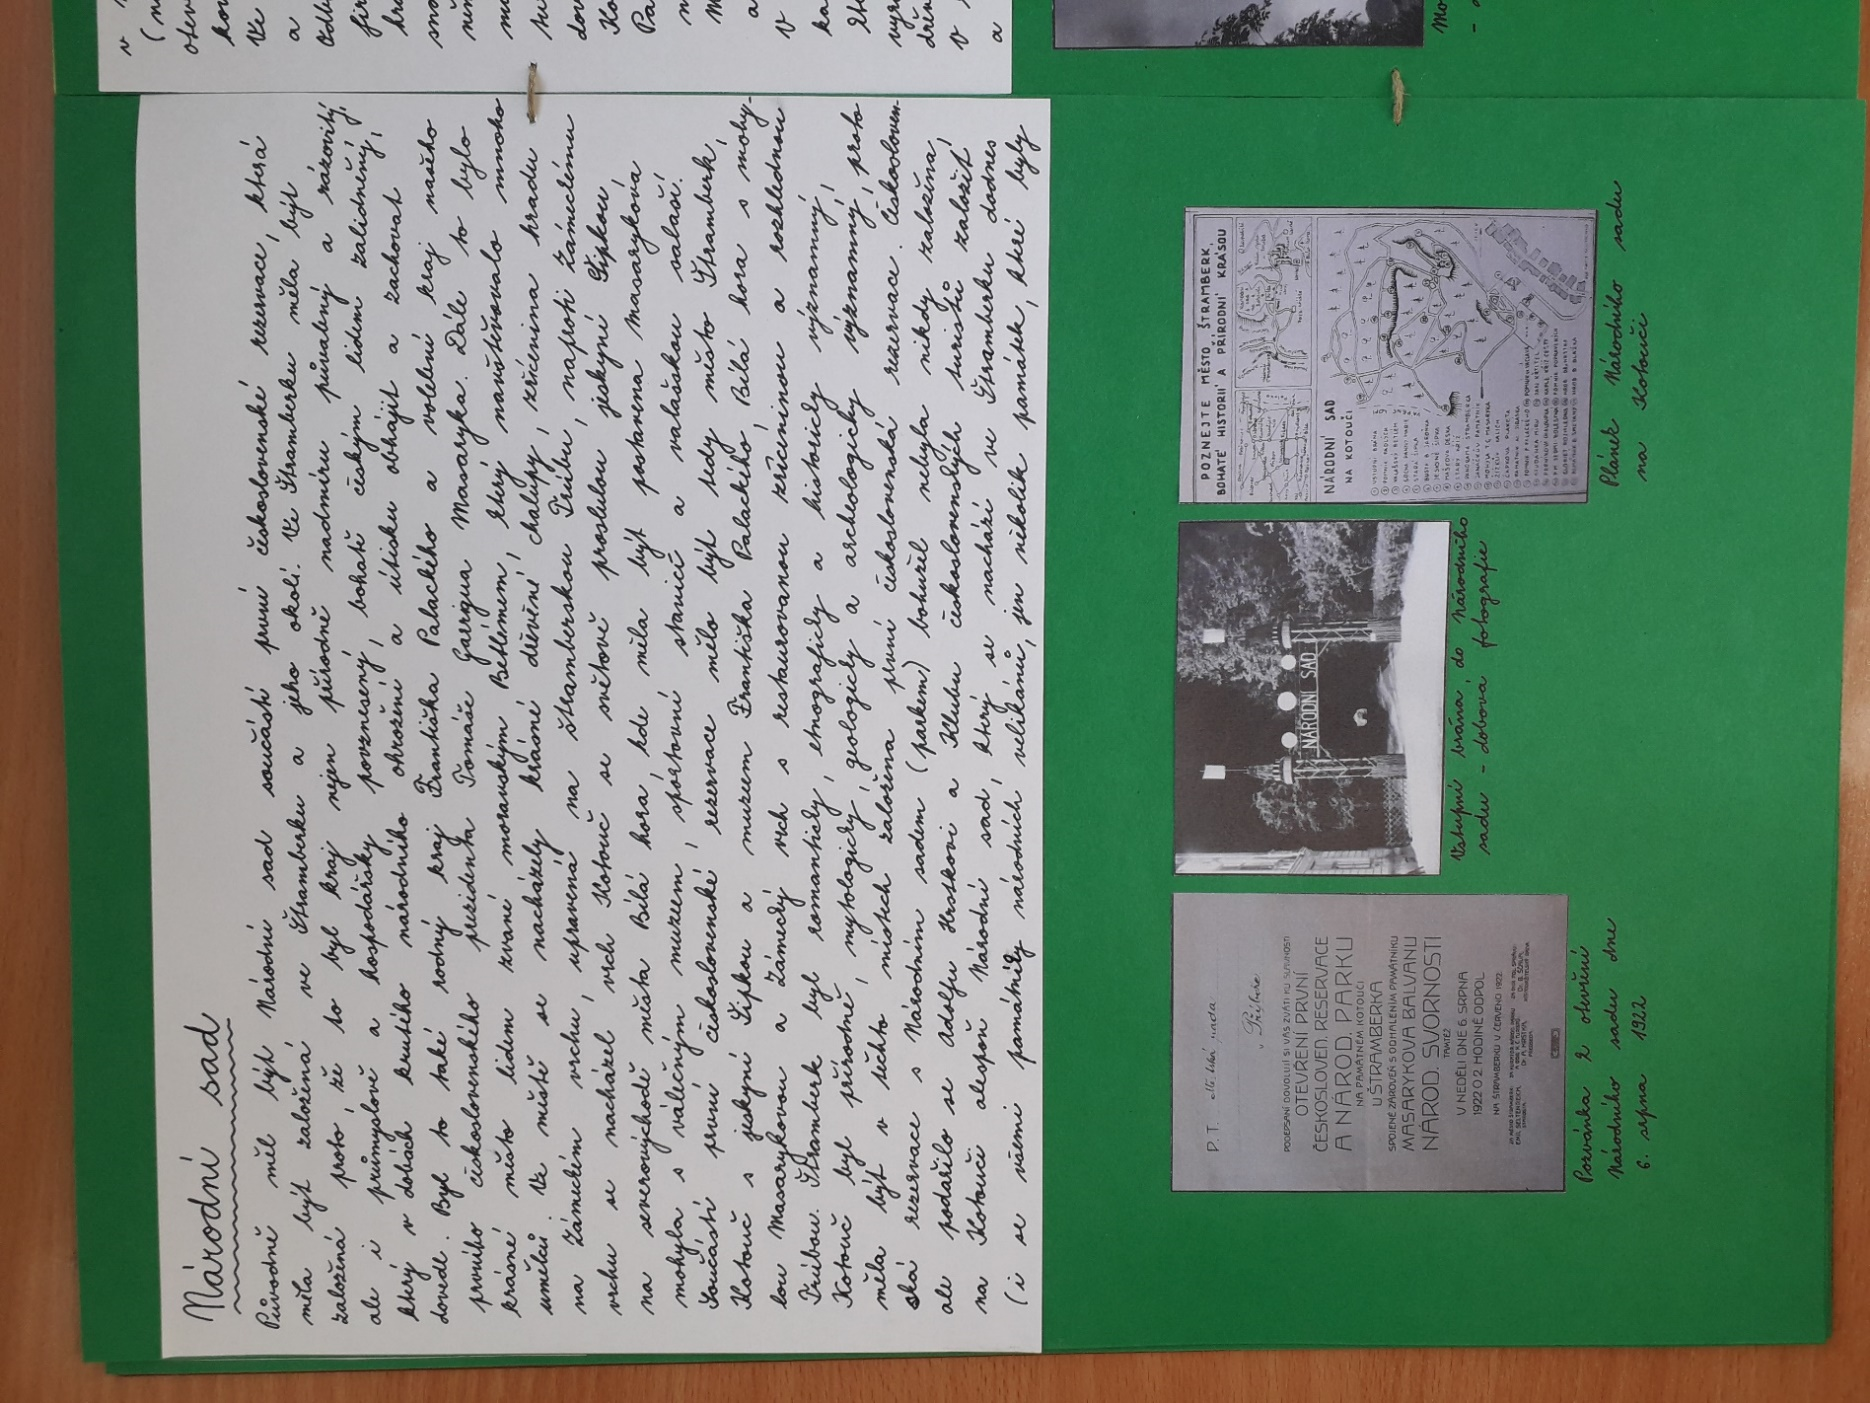 Národní sad
Původně měl být Národní sad součástí první československé rezervace, která
měla být založená ve Štramberku a jeho okolí. Ve Štramberku měla být
založená proto, že to byl kraj nejen přírodně nadmíru půvabný a rázovitý,
ale i průmyslově a hospodářsky povznesený, bohatě českým lidem zalidněný,
který v dobách krutého národního ohrožení a útisku obhájit a zachovat
dovedl. Byl to také rodný kraj Františka Palackého a volební kraj našeho
prvního československého prezidenta Tomáše Garrigua Masaryka. Dále to bylo
krásné město lidem zvané moravským Betlémem, který navštěvovalo mnoho
umělců. Ve městě se nacházely krásné dřevění chalupy, zřícenina hradu
na Zámeckém vrchu, upravená na Štramberskou Trúbu, naproti Zámeckému
vrchu se nacházel vrch Kotouč se světově proslulou jeskyní Šipkou,
na severovýchodě města Bílá hora, kde měla být postavena Masaryková
mohyla s válečným muzeem, sportovní stanicí a valašskou salaší.
Součástí první československé rezervace mělo být tedy město Štramberk,
Kotouč s jeskyní Šipkou a muzeem Františka Palackého, Bílá hora s mohy-
lou Masarykovou a Zámecký vrch s restaurovanou zříceninou a rozhlednou
Trúbou. Štramberk byl romanticky, etnograficky a historicky významný,
Kotouč byl přírodně, mytologicky, geologicky a archeologicky významný, proto
měla být v těchto místech založena první československá rezervace. Českosloven-
ská rezervace s Národním sadem (parkem) bohužel nebyla nikdy založena,
ale podařilo se Adolfu Hrstkovi a Klubu československých turistů založit
na Kotouči alespoň Národní sad, který se nachází ve Štramberku dodnes
(i se všemi památníky národních velikánů, jen několik památek, které byly
P. T.
v Příboře
PODEPSANÍ DOVOLUJÍ SI VÁS ZVÁTI KU SLAVNOSTI
OTEVŘENÍ PRVNÍ
ČESKOSLOVEN. RESERVACE
A NÁROD. PARKU
NA PAMÁTNÉM KOTOUČI
U ŠTRAMBERKA
SPOJENÉ ZÁROVEŇ S ODHALENÍM PAMÁTNÍKU
MASARYKOVA BALVANU
NÁROD. SVORNOSTI
TAMTÉŽ
V NEDĚLI DNE 6. SRPNA
1922 O 2. HODINĚ ODPOL.
NA ŠTRAMBERKU V ČERVENCI 1922.
Pozvánka z otevření
Národního sadu dne
6. srpna 1922
NÁRODNÍ SAD
Vstupní brána do Národního
sadu - dobová fotografie
POZNEJTE MĚSTO ŠTRAMBERK,
BOHATÉ HISTORIÍ A PŘÍRODNÍ KRÁSOU
NÁRODNÍ SAD
NA KOTOUČI
Plánek Národního sadu
na Kotouči